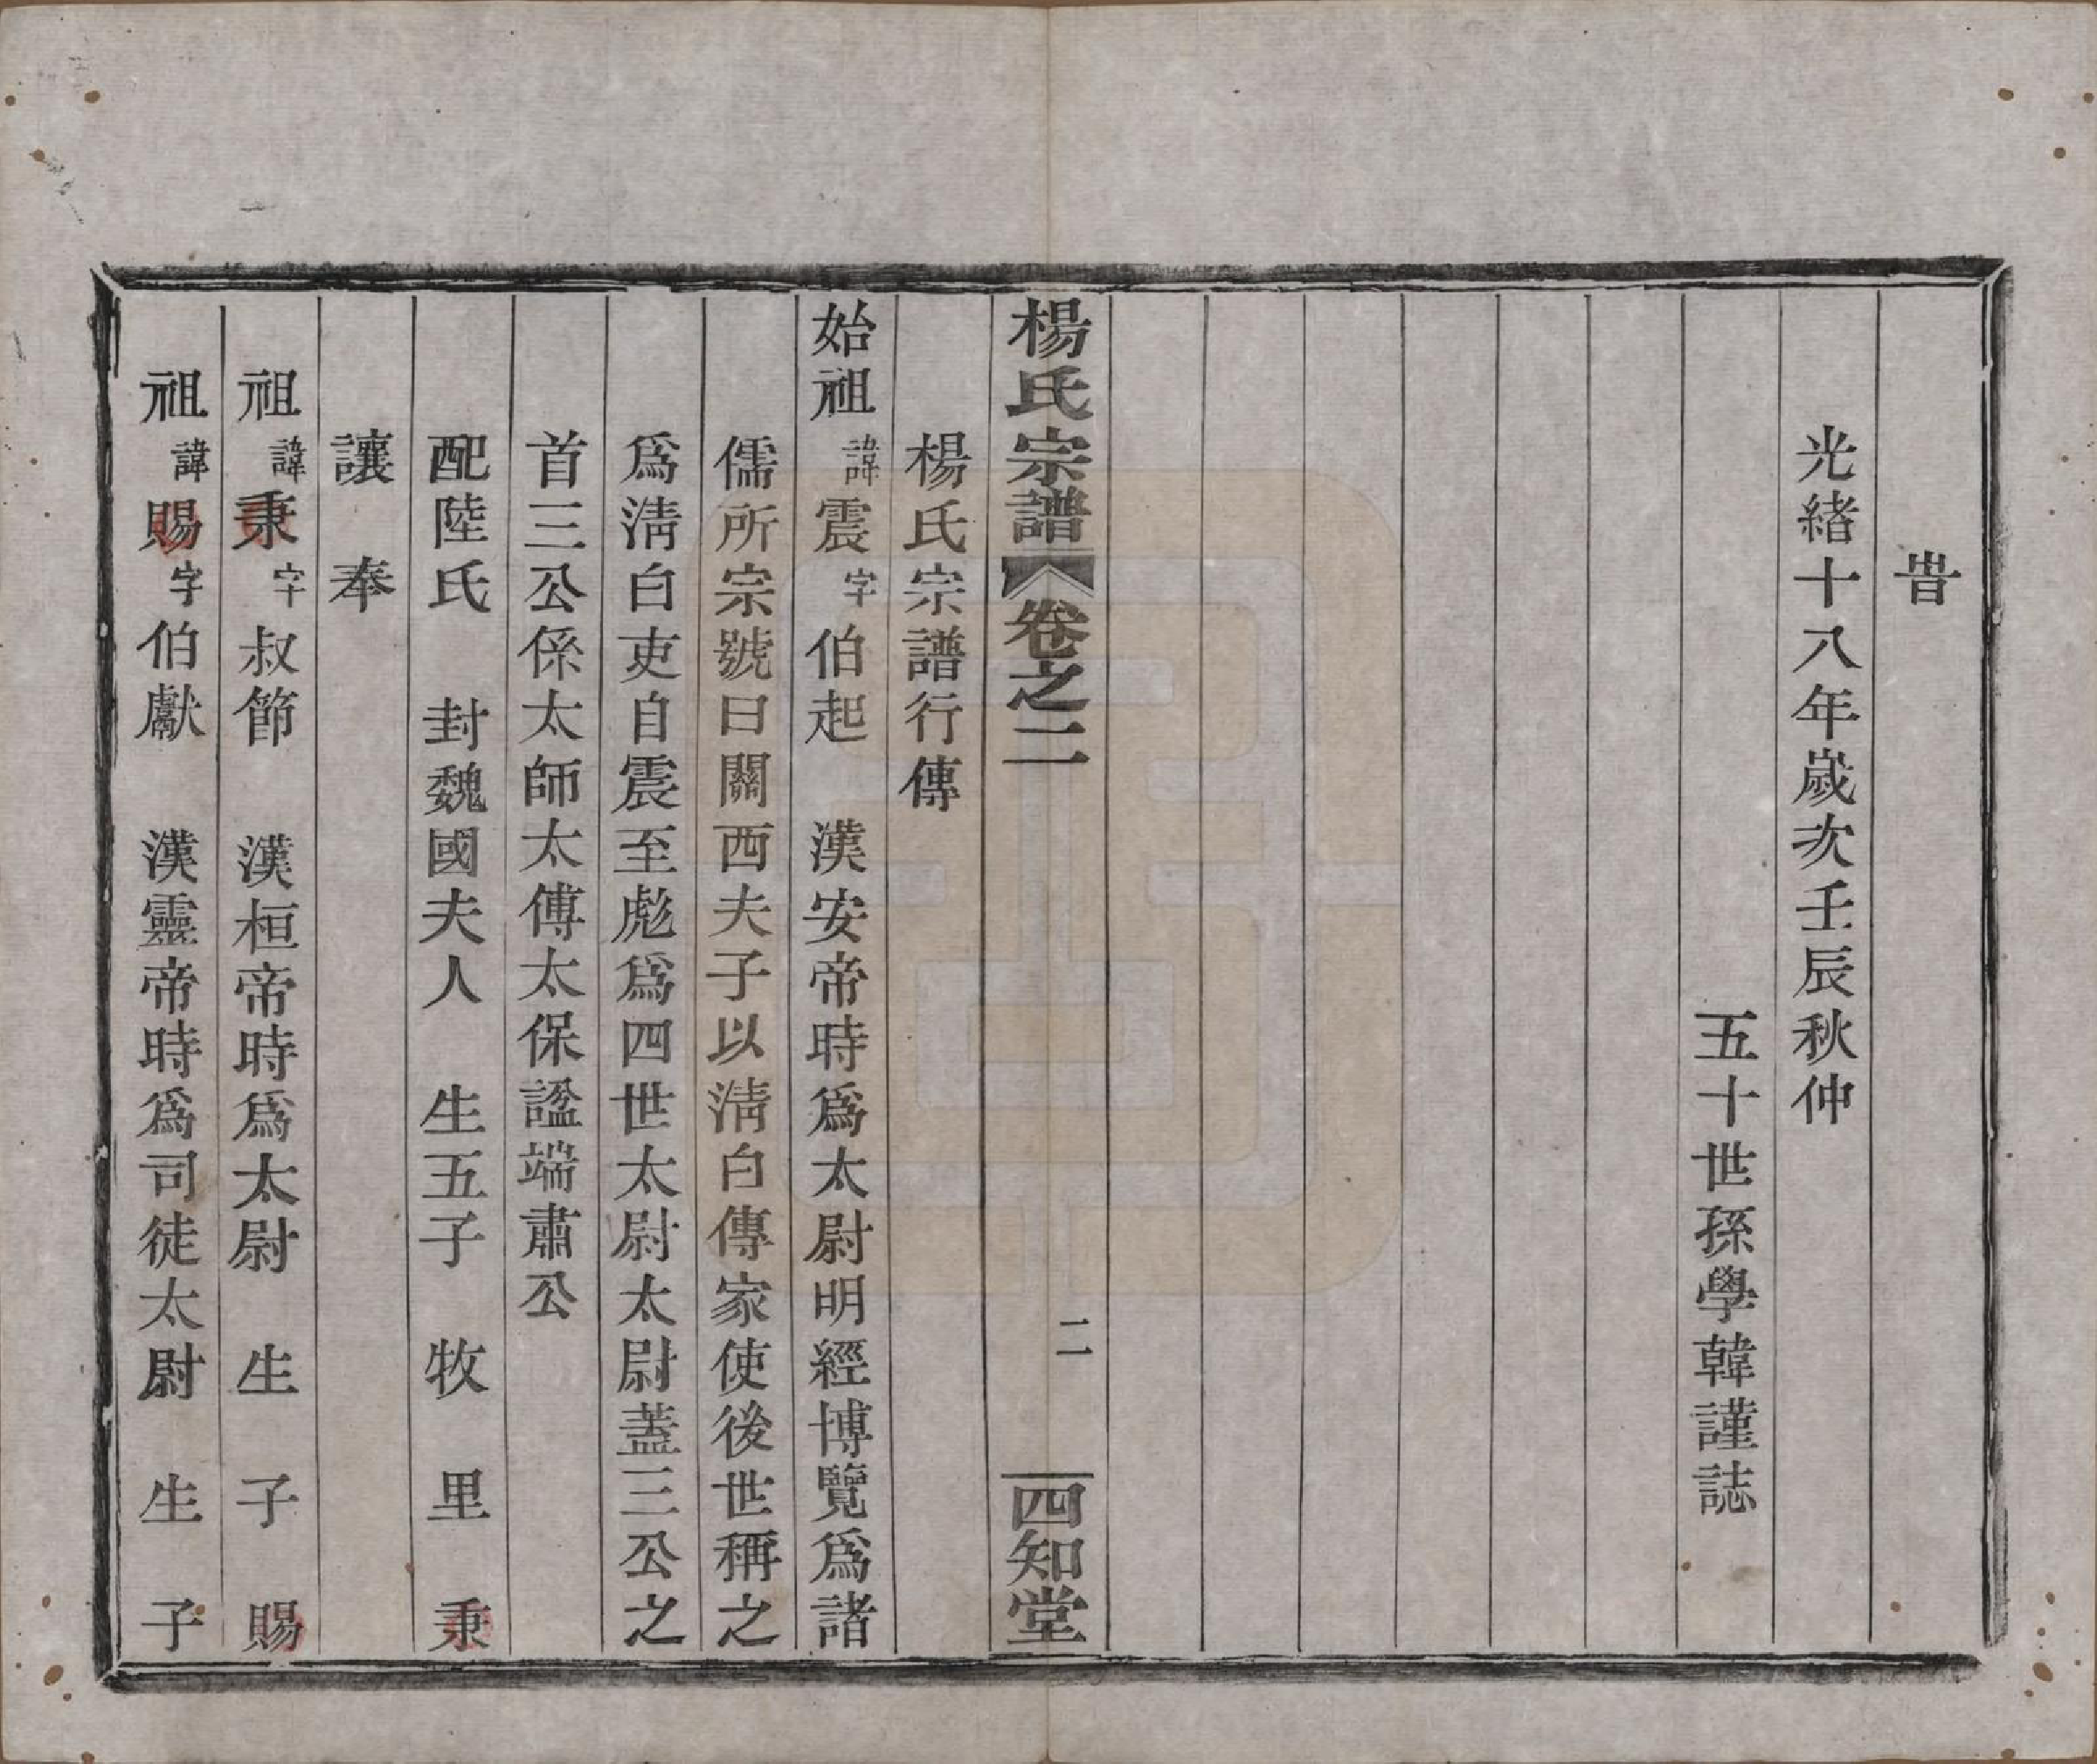 旹
光緒十八年歲次壬辰秋仲
五十世孫學韓謹誌
楊氏宗譜 卷之二 二 四知堂
楊氏宗譜行傳
始祖諱震字伯起 漢安帝時爲太尉明經博覽爲諸
儒所宗號曰關西夫子以淸白傳家使後世稱之
爲淸白吏自震至彪爲四世太尉太尉蓋三公之
首三公係太師太傅太保謚端肅公
配陸氏 封魏國夫人 生五子 牧 里 秉
讓 奉
祖諱秉字叔節 漢桓帝時爲太尉 生 子 賜
祖諱賜字伯獻 漢靈帝時爲司徒太尉 生 子